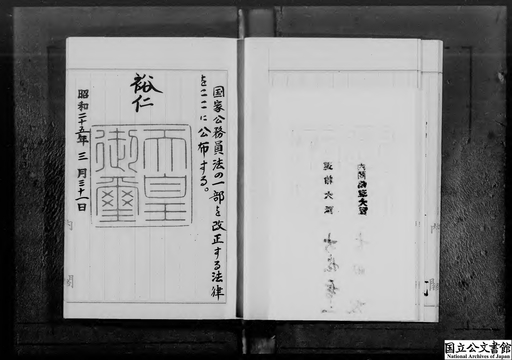 国家公務員法の一部を改正する法律
をここに公布する。
裕仁
天皇
御璽
昭和二十五年三月三十一日
内閣総理大臣
運輸大臣
国立公文書館
National Archives of Japan